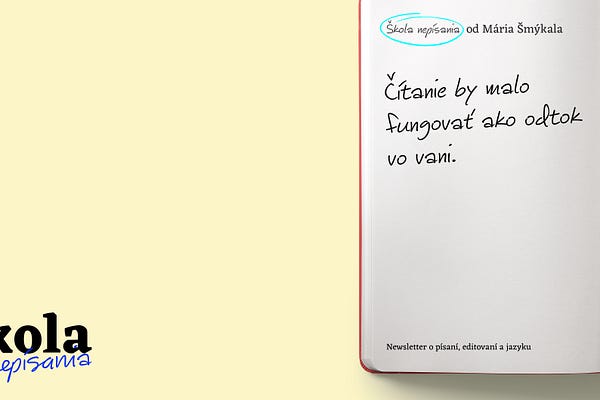 Škola nepísania od Mária Šmýkala
Čítanie by malo
fungovať ako odtok
vo vani.
Newsletter o písaní, editovaní a jazyku
kola
nepísania